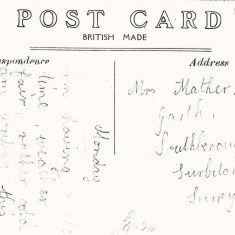 POST CARD
BRITISH MADE
respondence
Address
Monday
having a
time, weather
fair, rather cold
am
this
Mrs Mather,
Garth,
Southboro
Surbiton
Surrey